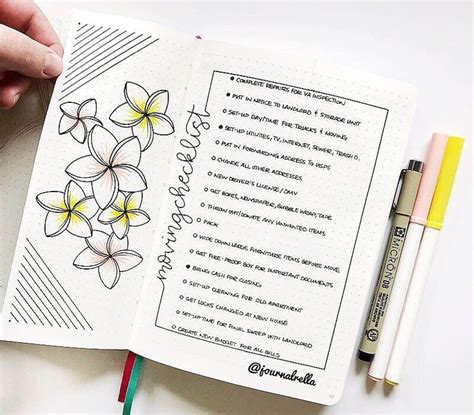 movingchecklist
COMPLETE REPAIRS FOR VA INSPECTION
PUT IN NOTICE TO LANDLORD & STORAGE UNIT
SET-UP DAY/TIME FOR TRUCKS & MOVING
SET-UP UTILITIES, TV, INTERNET, SEWER, TRASH
PUT IN FORWARDING ADDRESS TO USPS
CHANGE ALL OTHER ADDRESSES
NEW DRIVER'S LICENSE / DMV
GET BOXES, NEWSPAPER, BUBBLE WRAP, TAPE
THROW OUT/DONATE ANY UNWANTED ITEMS
PACK
WIPE DOWN LARGE FURNITURE ITEMS BEFORE MOVE
GET FIRE-PROOF BOX FOR IMPORTANT DOCUMENTS
BRING CASH FOR CLOSING
SET-UP CLEANING FOR OLD APARTMENT
GET LOCKS CHANGED AT NEW HOUSE
SET-UP TIME FOR FINAL SWEEP WITH LANDLORD
CREATE NEW BUDGET FOR ALL BILLS
@journalrella
MICRON 08